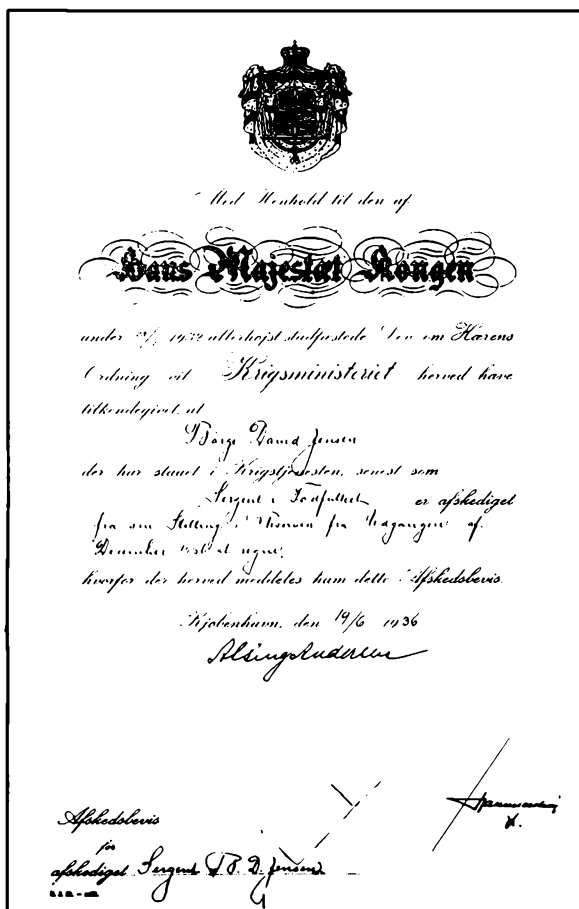 Med Henhold til den af
Hans Majestæt Kongen
under 1932 allerhøjst stadfæstede Lov om Hærens
Ordning vil Krigsministeriet herved have
tilkendegivet, at
Børge David Jensen
der har staaet i Krigstjenesten, senest som
Sergent i Fodfolket er afskediget
fra sin Stilling i Hæren fra Udgangen af
December at regne,
hvorfor der herved meddeles ham dette Afskedsbevis.
Kjøbenhavn, den 19/6 1936
Alsing Andersen
Afskedsbevis
for
afskediget Sergent B. D. Jensen